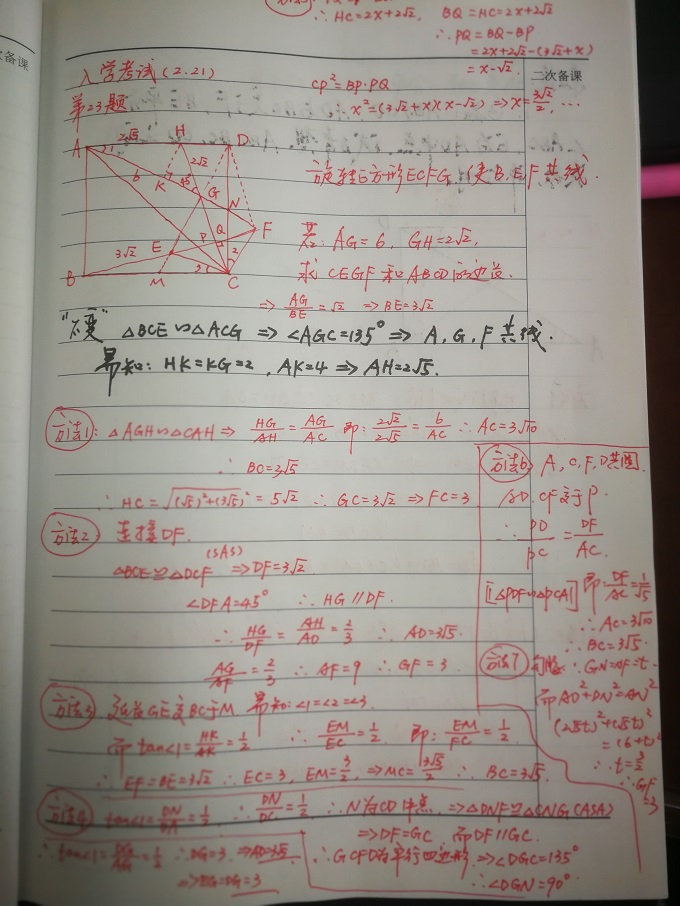 ∴ HC=2x+2√2, BQ=HC=2x+2√2
∴PQ=BQ-BP
=2x+2√2-(3√2+x)
=x-√2.
次备课
二次备课
入学考试(2.21)
第23题
CP²=BP·PQ
∴x²=(3√2+x)(x-√2) ⇒x=3√2/2, ...
A 2√5 H D
1 6 K 45° 2√2 G N
3√2 E P Q F
B M 3 2 C
旋转正方形ECFG, 使B、E、F共线.
若: AG=6, GH=2√2,
求CEGF和ABCD的边长.
⇒ AG/BE=√2 ⇒BE=3√2
"不变" △BCE∽△ACG ⇒ ∠AGC=135° ⇒ A, G, F共线.
易知: HK=KG=2, AK=4 ⇒AH=2√5.
方法1: △AGH∽△CAH ⇒ HG/AH=AG/AC 即: 2√2/2√5=6/AC ∴AC=3√10
∴BC=3√5
∴HC=√(√5)²+(3√5)²=5√2 ∴GC=3√2 ⇒FC=3
方法2 连接DF.
△BCE≌△DCF (SAS) ⇒DF=3√2
∠DFA=45° ∴HG∥DF.
∴HG/DF=AH/AD=2/3 ∴AD=3√5.
AG/AF=2/3 ∴AF=9 ∴GF=3
方法3 延长GE交BC于M 易知:∠1=∠2=∠3
而tan∠1=HK/AK=1/2 ∴EM/EC=1/2. 即: EM/FC=1/2.
∴EF=BE=3√2 ∴EC=3, EM=3/2, ⇒MC=3√5/2 ∴BC=3√5.
方法4 tan∠1=DN/DA=1/2, ∴DN/DC=1/2 ∴N为CD中点 ⇒△DNF≌△CNG(ASA)
⇒DF=GC. 而DF∥GC.
∴GCFD为平行四边形 ⇒∠DGC=135°
∴∠DGN=90°
∴tan∠1=DG/AG=1/2 ∴DG=3 ⇒AD=3√5
方法6 A, C, F, D共圆.
AD, CF交于P.
∴PD/PC=DF/AC.
[△PDF∽△PCA] 即:DF/AC=1/√5
∴AC=3√10
∴BC=3√5.
方法7 勾股: GN=NF=t
而AD²+DN²=AN²
(2√5t)²+(√5t)²
=(6+t)²
∴t=3/2
∴GF
=3